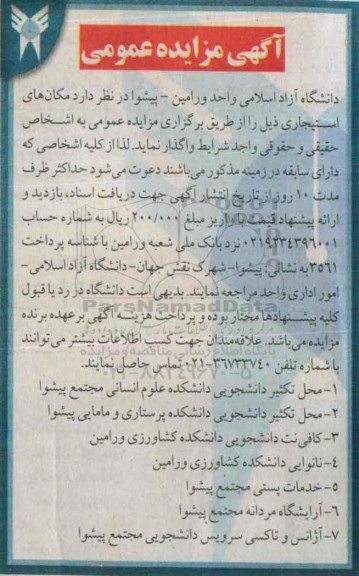 آگهی مزایده عمومی
دانشگاه آزاد اسلامی واحد ورامین - پیشوا در نظر دارد مکان‌های
استیجاری ذیل را از طریق برگزاری مزایده عمومی به اشخاص
حقیقی و حقوقی واجد شرایط واگذار نماید. لذا از کلیه اشخاصی که
دارای سابقه در زمینه مذکور می‌باشند دعوت می‌شود حداکثر ظرف
مدت ۱۰ روز از تاریخ انتشار آگهی جهت دریافت اسناد، بازدید و
ارائه پیشنهاد قیمت با واریز مبلغ ۲۰۰/۰۰۰ ریال به شماره حساب
۰۲۱۹۲۳۴۳۹۶۰۰۱ نزد بانک ملی شعبه ورامین با شناسه پرداخت
۳۵۶۱ به نشانی: پیشوا- شهرک نقش جهان- دانشگاه آزاد اسلامی-
امور اداری واحد مراجعه نمایند. بدیهی است دانشگاه در رد یا قبول
کلیه پیشنهادها مختار بوده و پرداخت هزینه آگهی برعهده برنده
مزایده می‌باشد. علاقه‌مندان جهت کسب اطلاعات بیشتر می‌توانند
با شماره تلفن ۳۶۷۳۳۷۴۰-۰۲۱ تماس حاصل نمایند.
۱- محل تکثیر دانشجویی دانشکده علوم انسانی مجتمع پیشوا
۲- محل تکثیر دانشجویی دانشکده پرستاری و مامایی پیشوا
۳- کافی نت دانشجویی دانشکده کشاورزی ورامین
۴- نانوایی دانشکده کشاورزی ورامین
۵- خدمات پستی مجتمع پیشوا
۶- آرایشگاه مردانه مجتمع پیشوا
۷- آژانس و تاکسی سرویس دانشجویی مجتمع پیشوا
ParsNamadData